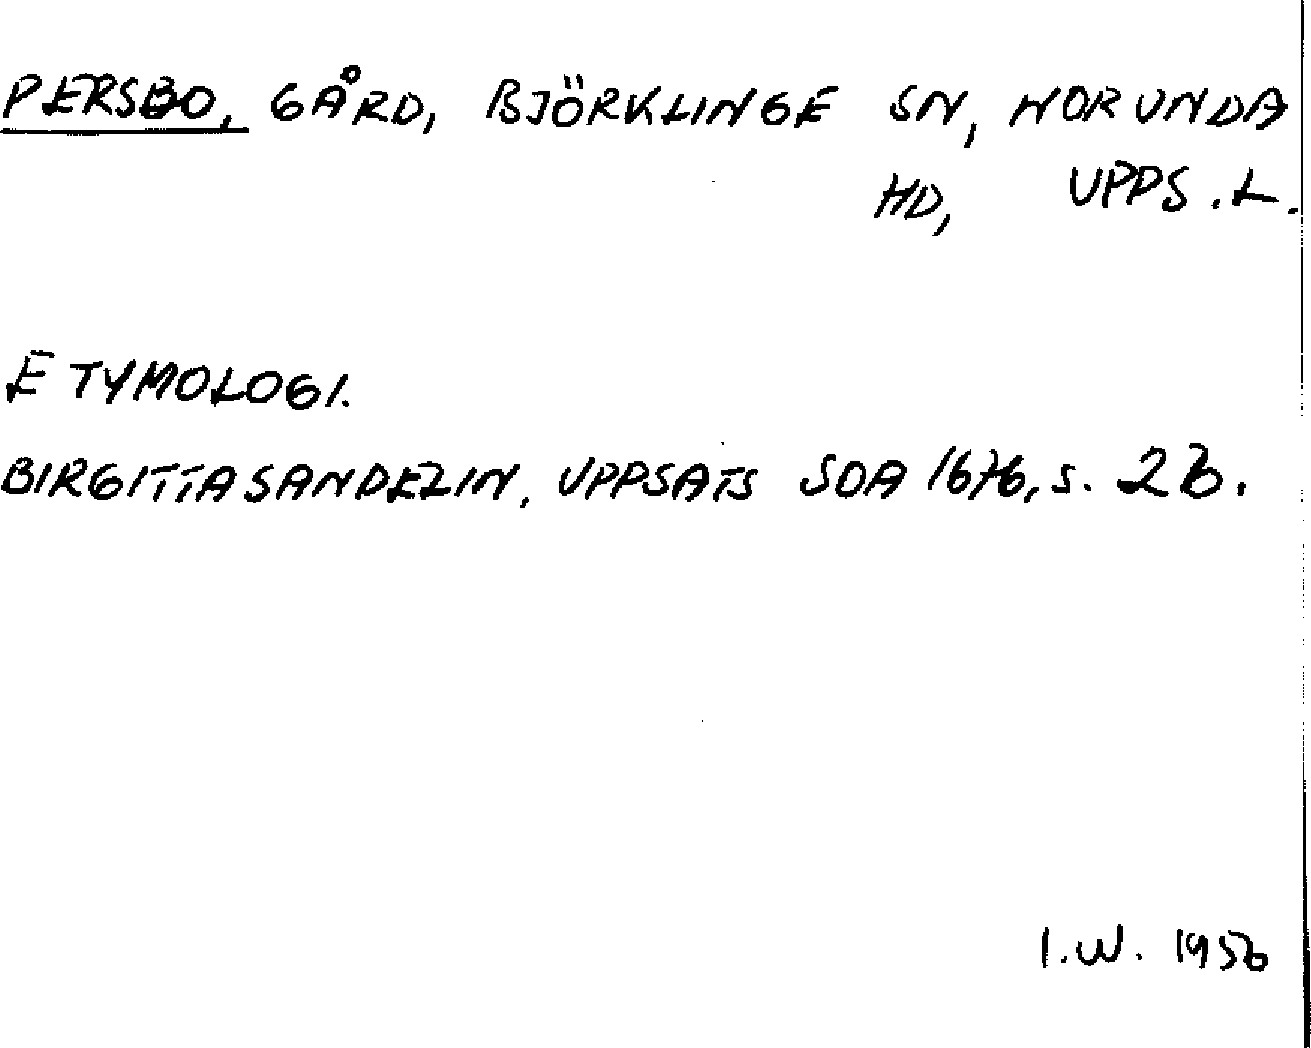 PERSBO, GÅRD, BJÖRKLINGE SN, NORUNDA
HD, UPPS.L.
ETYMOLOGI.
BIRGITTA SANDELIN, UPPSATS SOA 1676, s. 26.
I.W. 1956